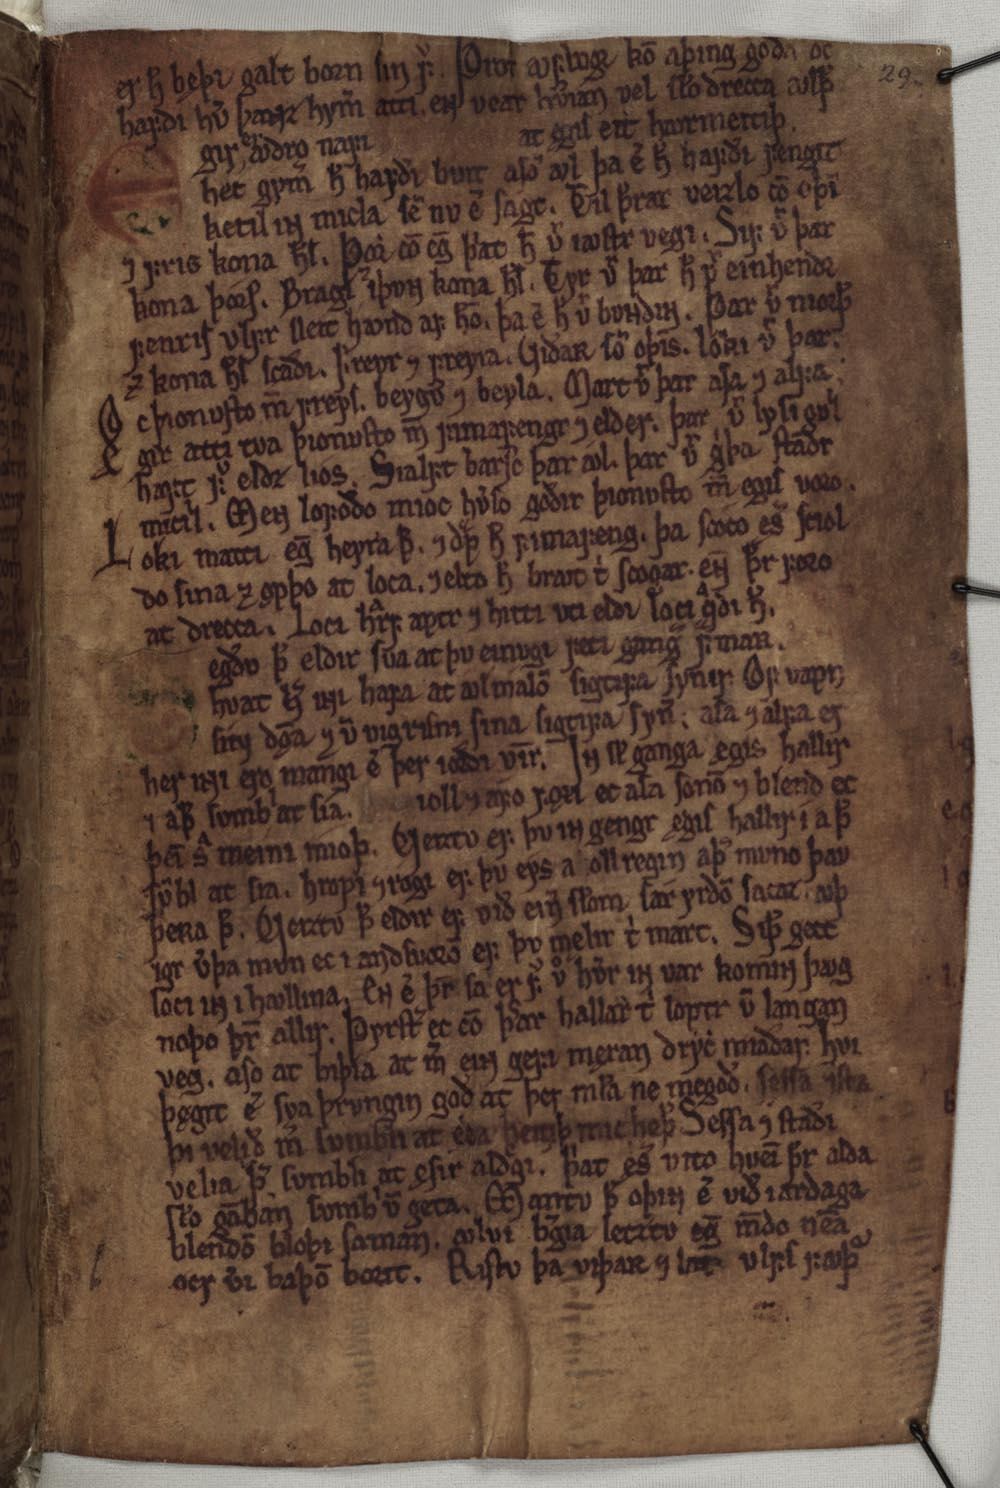 29.
er h̄ beþi galt born sin f͛. Þrot avflvgr kō aþing goða oc
hafdi hv̄ þanz hym̄ atti. en vear hv̄ian vel sło drecca avlþ̄
at ęgıſ eıt havrmeıtıþ.
gir er avdro nafni
het gym̄ h̄ hafði bvit asō avl þa ē h̄ hafði fengit
ketil in micla sē nv ē sagt. Til þ̄rar veizlo cō oþī
⁊ frig kona h̄s. Þoʀ cō eḡ þat h̄ v̄ i avſtr vegi. Sif v̄ þar
kona þórſ. Bragi ⁊ iþvn kona h̄s. Tyr v̄ þar h̄ v̄ einhendr
fenriſ vlfr sleit havnd af hō. þa ē h̄ v̄ bvndin. Þar v̄ niorþ̄
⁊ kona h̄s scaði. freyr ⁊ freyia. Viðaʀ sō oþīs. loki v̄ þar.
oc þionvſto m̄ freyſ. beygv̄ ⁊ beyla. Mart v̄ þar aſa ⁊ alfa.
Egir atti tva þionvſto m̄ fimafengr ⁊ elder. þar v̄ lysigvł
haft f͛ eldz lios. Sialft barſc þar avl. þar v̄ g̊þa ſtaðr
micill. Men lofoðo mioc hv̄ſo góðir þionvſto m̄ egiſ voro.
Loki matti eḡ heyra þ̄. ⁊ dþ̄ h̄ fimafeng. þa ſcoco ęſ̄ ſciol
do sina ⁊ ǫpþo at loca. ⁊ elto h̄ bravt t̄ ſcogar. en þr̄ foro
at drecca. Loci hv̄rf aptr ⁊ hitti vti eldi loci q̊ði h̄.
egðv þ̄ eldir sva at þv einvgi feti gang̅ framaʀ.
hvat h̄ ini hafa at avlmalō ſigtifa ſynir. Of vapn
sin dǭa ⁊ v̄ vigriſni ſina ſigtifa ſyn̄. aſa ⁊ alfa er
her ini ero mangi ē þer i oрði vinr. In sł ganga ęgis hallir
⁊ aþ̄ svmbl at siá. ioll ⁊ áfo fǫri ec aſa ſonō ⁊ blend ec
þei s̄ meini mioþ. Veiztv ef þv in gengr ęgiſ hallir i aþ̄
sv̄bl at sia. hropi ⁊ rogi ef þv eyſ a oll regin aþ̄ mvno þav
þeʀa þ̄. Veiztv þ̄ eldir ef við ein słom ſár yrðō ſacaz. avþ
igr v̄þa mvn ec i andſvorō ef þv męlir t̄ mart. Siþ̄ gecc
loci in i havllina. En ē þr̄ sa er f͛ v̊ hv̄r in var komin þavg
noþo þr̄ allir. Þyrſtr ec cō þ̄ar hallar t̄ loptr v̄ langan
veg. aſo at biþia at m̄ ein gefi męran drycc miaðar. hvi
þęgit ē sva þrvngin goð at þer męla ne megoð.
Sessa ⁊ ſtaði
velia þ̄ svmbli at ęſir aldregi. þ̄at ęſ̄ vito hveī þr̄ alda
sło gābān svmbl v̄ geta. Mantv þ̄ oþin ē við i ardaga
blendō bloþi ſaman. avlvi b̄gia letztv eḡ m̄do nēa
ocr v̄i baþō borit. Riſtv þa viþaʀ ⁊ lát vlfſ favþv̄